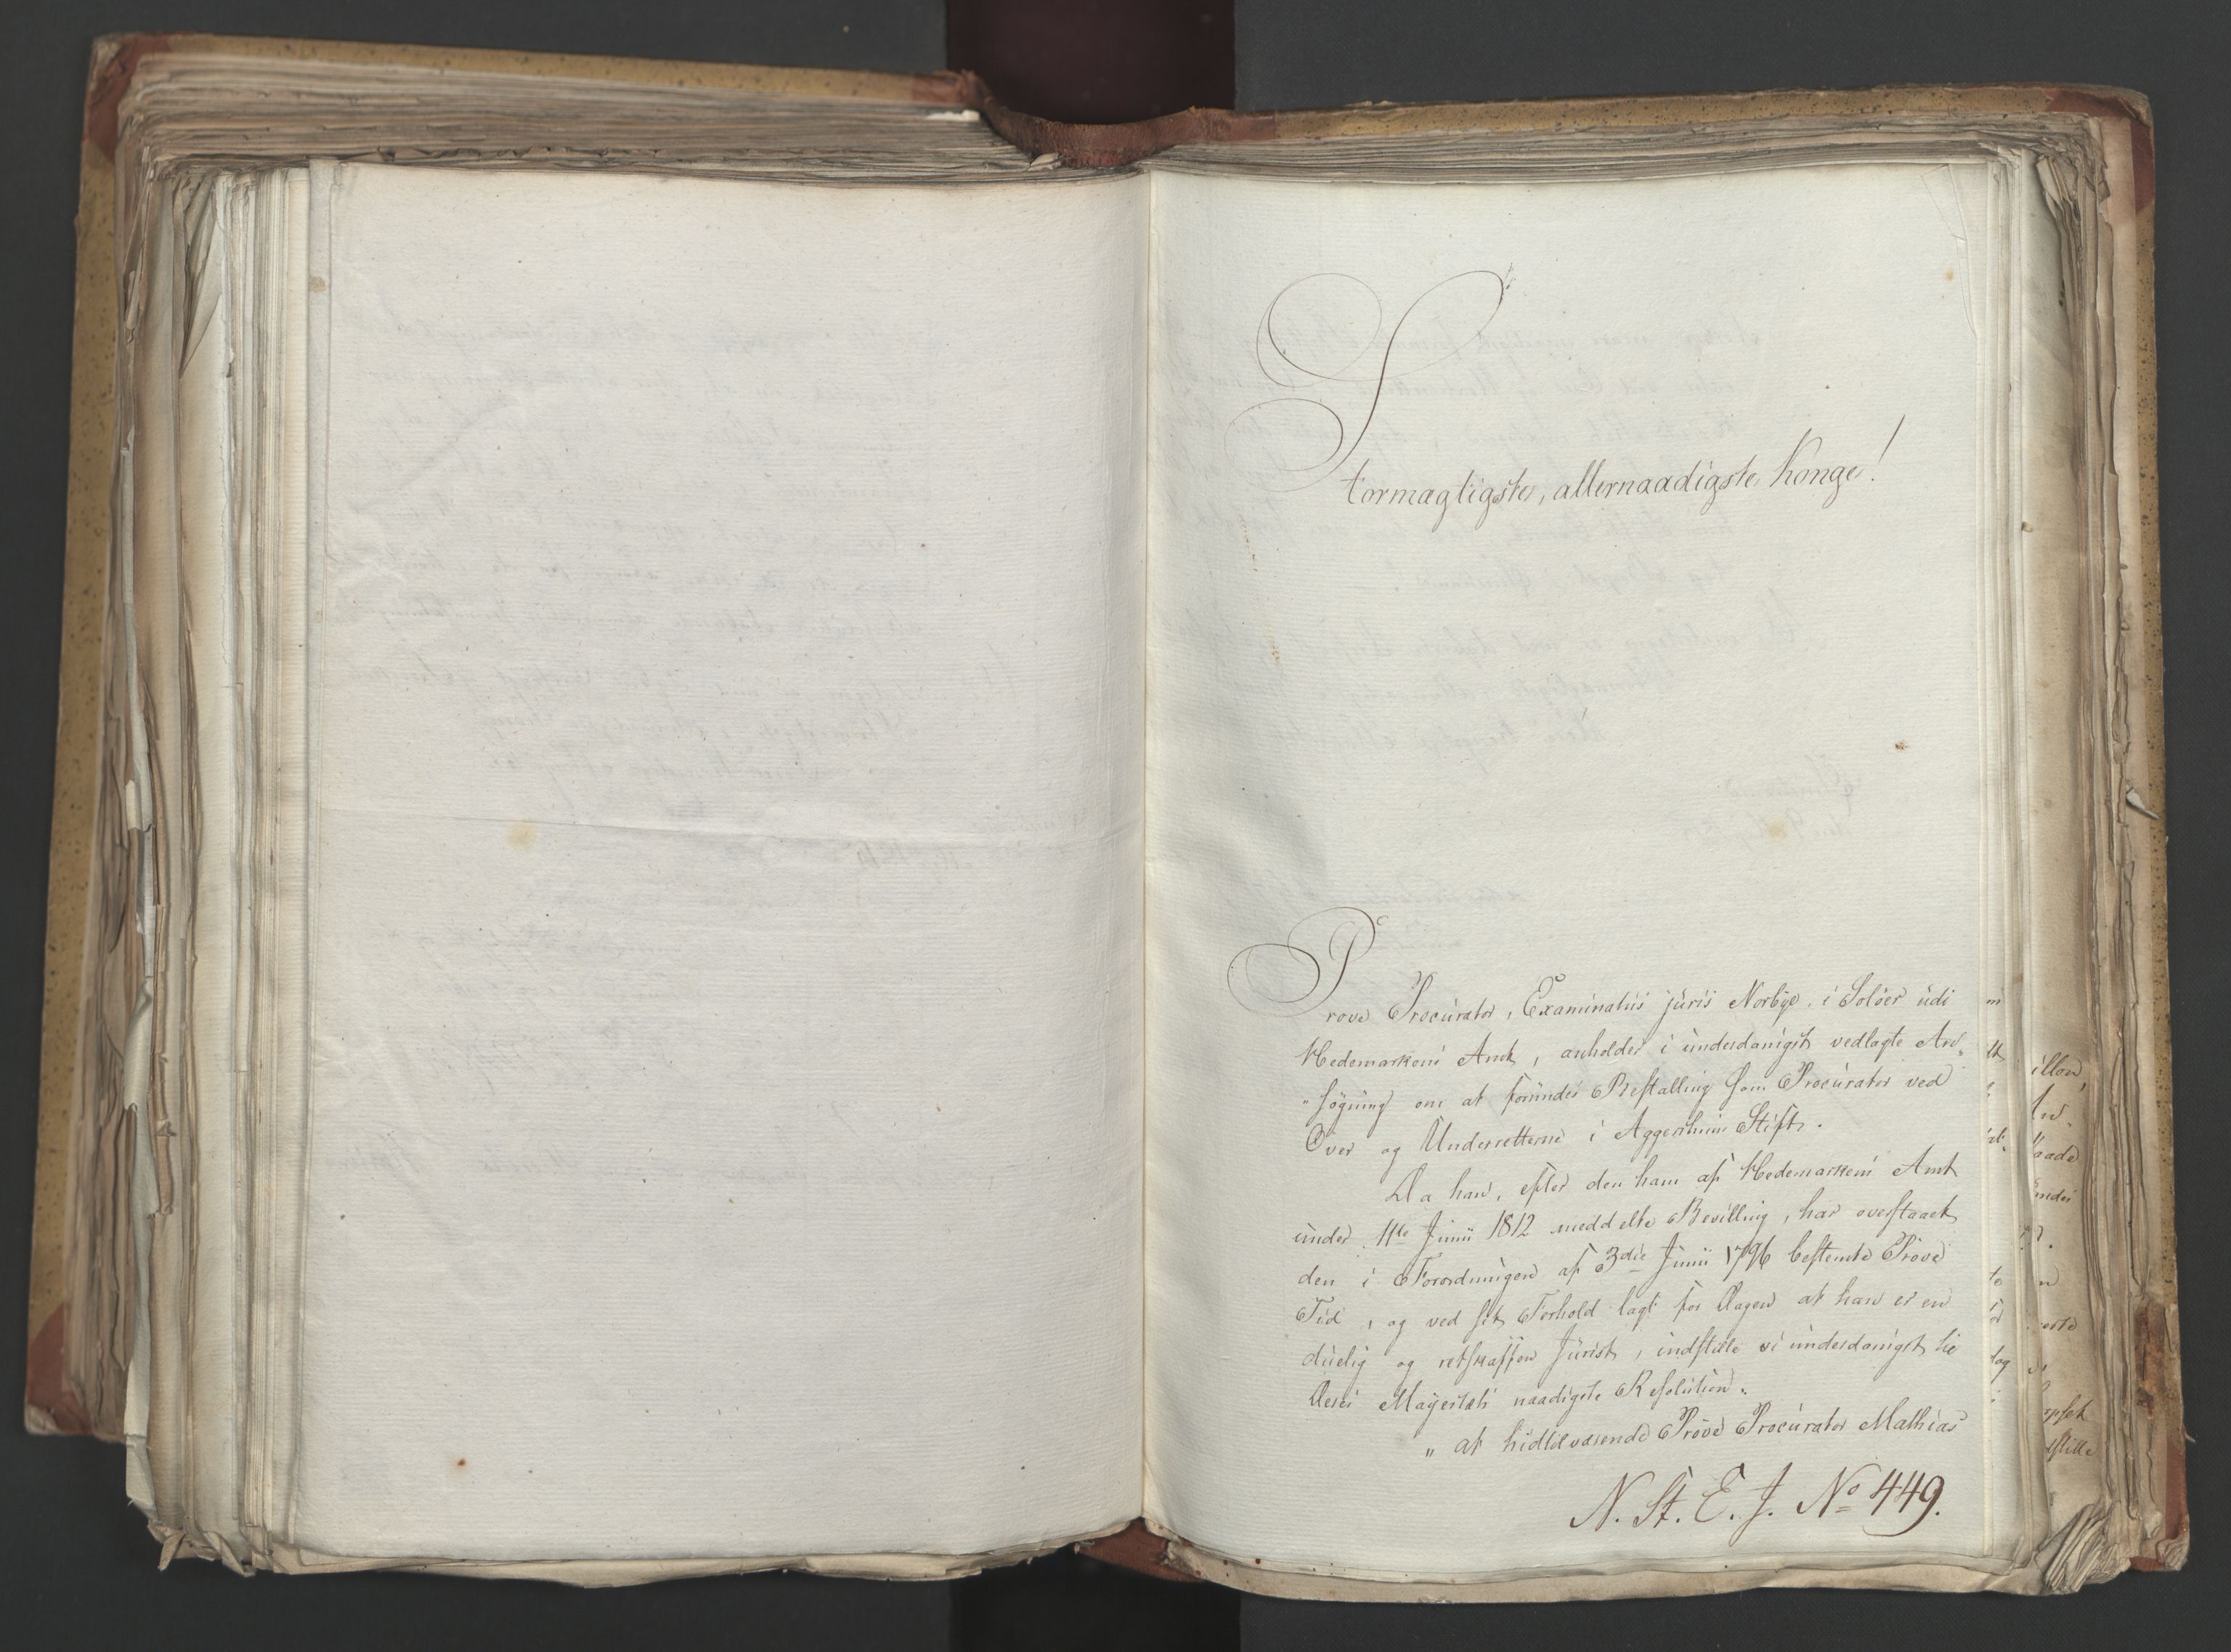 Stormægtigste, allernaadigste Konge!
Prøve Procurator, Examinatus juris Norbye i Soløer udi
Hedemarkens Amt, anholder i underdanigst vedlagte An-
"søgning om at forundes Bestalling som Procurator ved
Over og Underretterne i Aggershuus Stift.
Da han, efter den ham af Hedemarkens Amt
under 11te Junii 1812 meddelte Bevilling, har overstaaet
den i Forordningen af 3die Junii 1796 bestemte Prøve
Tid, og ved sit Forhold lagt for Dagen at han er en
duelig og retskaffen Jurist, indstille vi underdanigst til
Deres Majestæts naadigste Resolution.
"at hidtilværende Prøve Procurator Mathias
N. St. E. J. No 449.